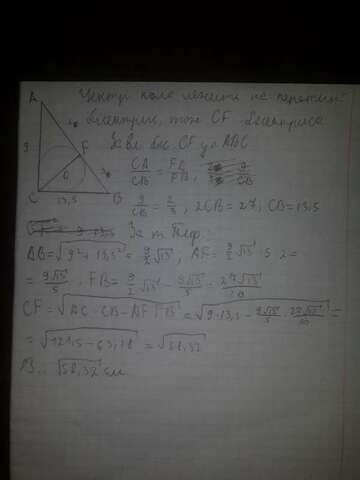 Центр кола лежить на перетині
бісектрис, тож CF - бісектриса
За вл. біс. CF у △ABC
A
9
F
O
C 13,5 B
CA/CB = FA/FB,
9/CB = 2/3, 2CB = 27, CB = 13,5
За т. Піф.:
AB = √(9² + 13,5²) = 9/2 √13, AF = 9/2 √13 : 5 · 2 =
= 9√13/5, FB = 9/2 √13 - 9√13/5 = 27√13/10
CF = √(AC · CB - AF · FB) = √(9 · 13,5 - 9√13/5 · 27√13/10) =
= √(121,5 - 63,18) = √58,32
В.: √58,32 см